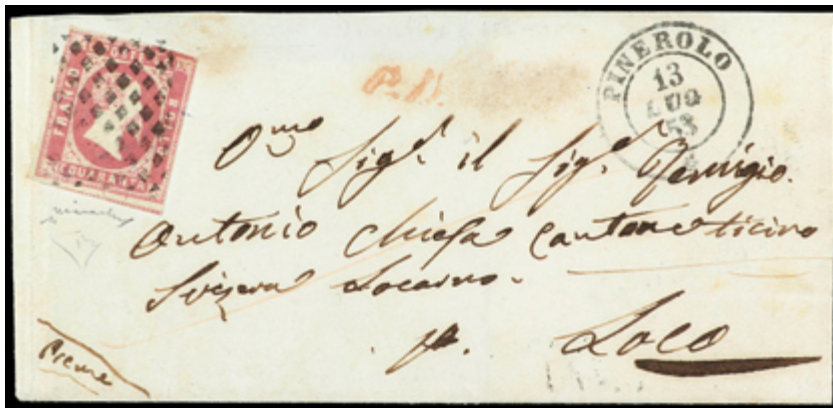 FRANCO QUARANTA
P.D.
PINEROLO
13
LUG
53
Omo Sigr il Sigr Remigio
Antonio Chiesa Cantone ticino
Svizera Locarno.
p. Loco
Preme